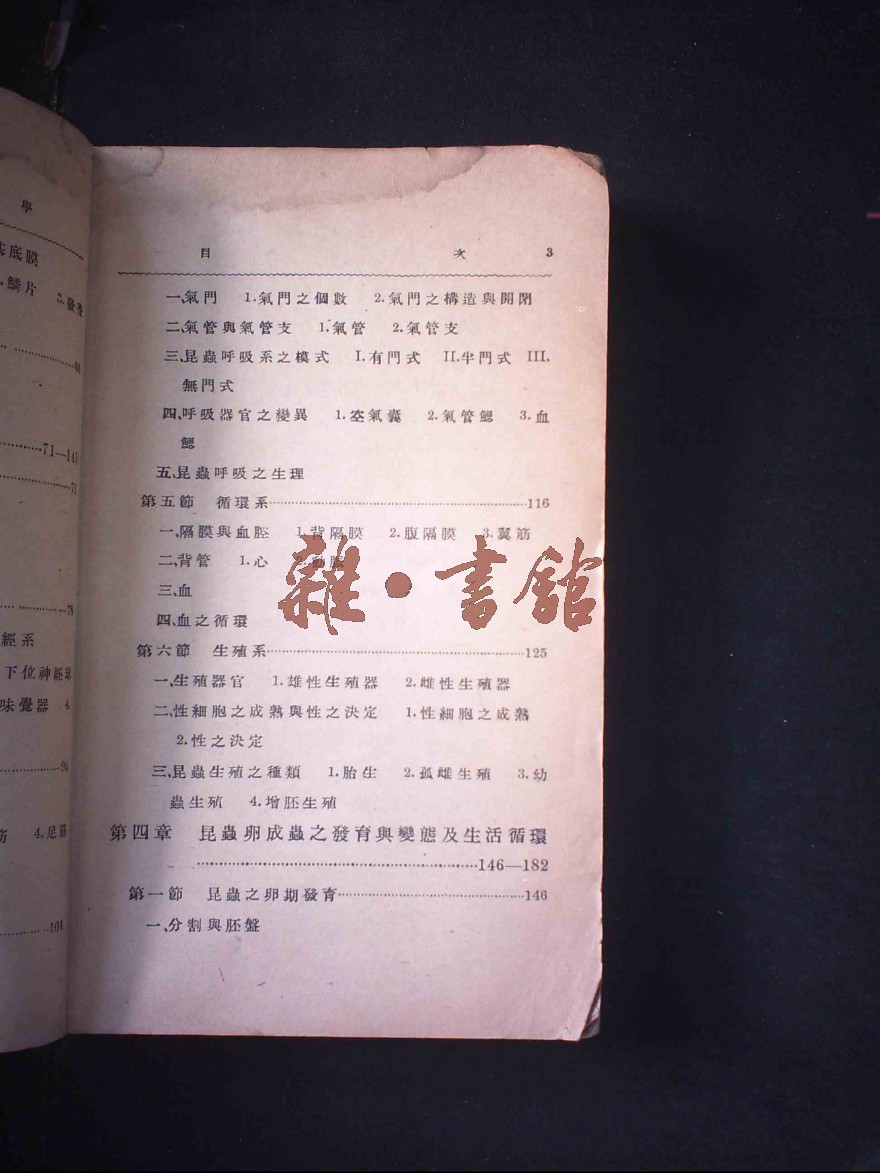 學
底膜
鱗片 3.發香
68
71—145
71
78
經系
下位神經球
味覺器 4.
94
筋 4.足筋
104
目 次 3
一、氣門 1.氣門之個數 2.氣門之構造與開閉
二、氣管與氣管支 1.氣管 2.氣管支
三、昆蟲呼吸系之模式 I.有門式 II.半門式 III.
無門式
四、呼吸器官之變異 1.空氣囊 2.氣管鰓 3.血
鰓
五、昆蟲呼吸之生理
第五節 循環系……116
一、隔膜與血腔 1.背隔膜 2.腹隔膜 3.翼筋
二、背管 1.心 2.動脈
三、血
四、血之循環
雜•書館
第六節 生殖系……125
一、生殖器官 1.雄性生殖器 2.雌性生殖器
二、性細胞之成熟與性之決定 1.性細胞之成熟
2.性之決定
三、昆蟲生殖之種類 1.胎生 2.孤雌生殖 3.幼
蟲生殖 4.增胚生殖
第四章 昆蟲卵成蟲之發育與變態及生活循環
……146—182
第一節 昆蟲之卵期發育……146
一、分割與胚盤